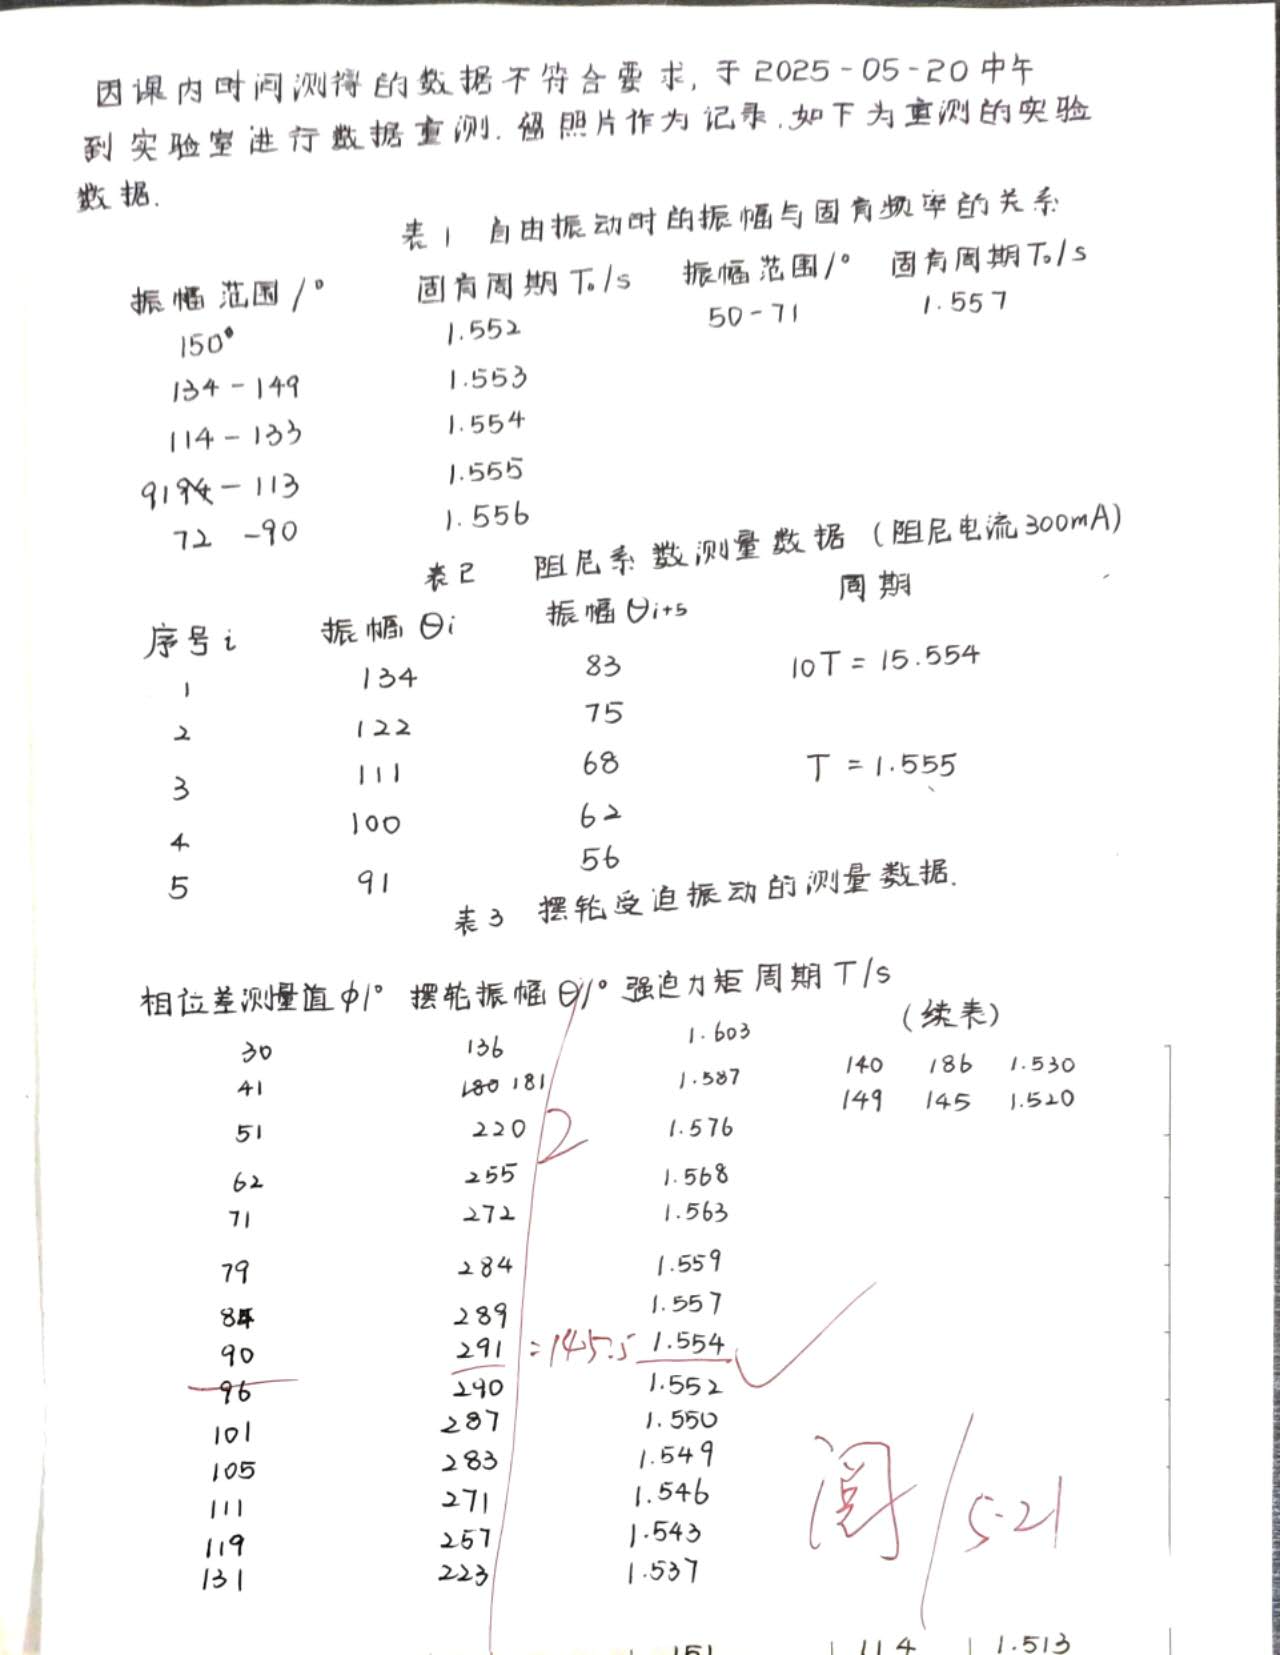 因课内时间测得的数据不符合要求,于2025-05-20中午
到实验室进行数据重测.留照片作为记录.如下为重测的实验
数据.
表1 自由振动时的振幅与固有频率的关系
振幅范围/° 固有周期T₀/s 振幅范围/° 固有周期T₀/s
150° 1.552 50-71 1.557
134-149 1.553
114-133 1.554
91-113 1.555
72-90 1.556
表2 阻尼系数测量数据(阻尼电流300mA)
序号i 振幅θi 振幅θi+5 周期
1 134 83 10T=15.554
2 122 75
3 111 68 T=1.555
4 100 62
5 91 56
表3 摆轮受迫振动的测量数据.
相位差测量值φ/° 摆轮振幅θ/° 强迫力矩周期T/s
(续表)
30 136 1.603
41 180 181 1.587
51 220 1.576
62 255 1.568
71 272 1.563
79 284 1.559
84 289 1.557
90 291 =145.5 1.554
96 290 1.552
101 287 1.550
105 283 1.549
111 271 1.546
119 257 1.543
131 223 1.537
140 186 1.530
149 145 1.520
2
阅/5-21
151 114 1.513